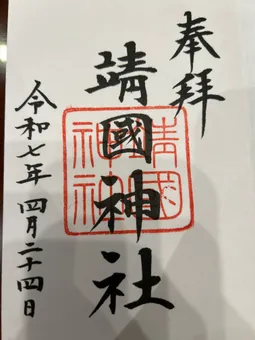 奉拝
靖國神社
靖國神社
令和七年 四月二十四日